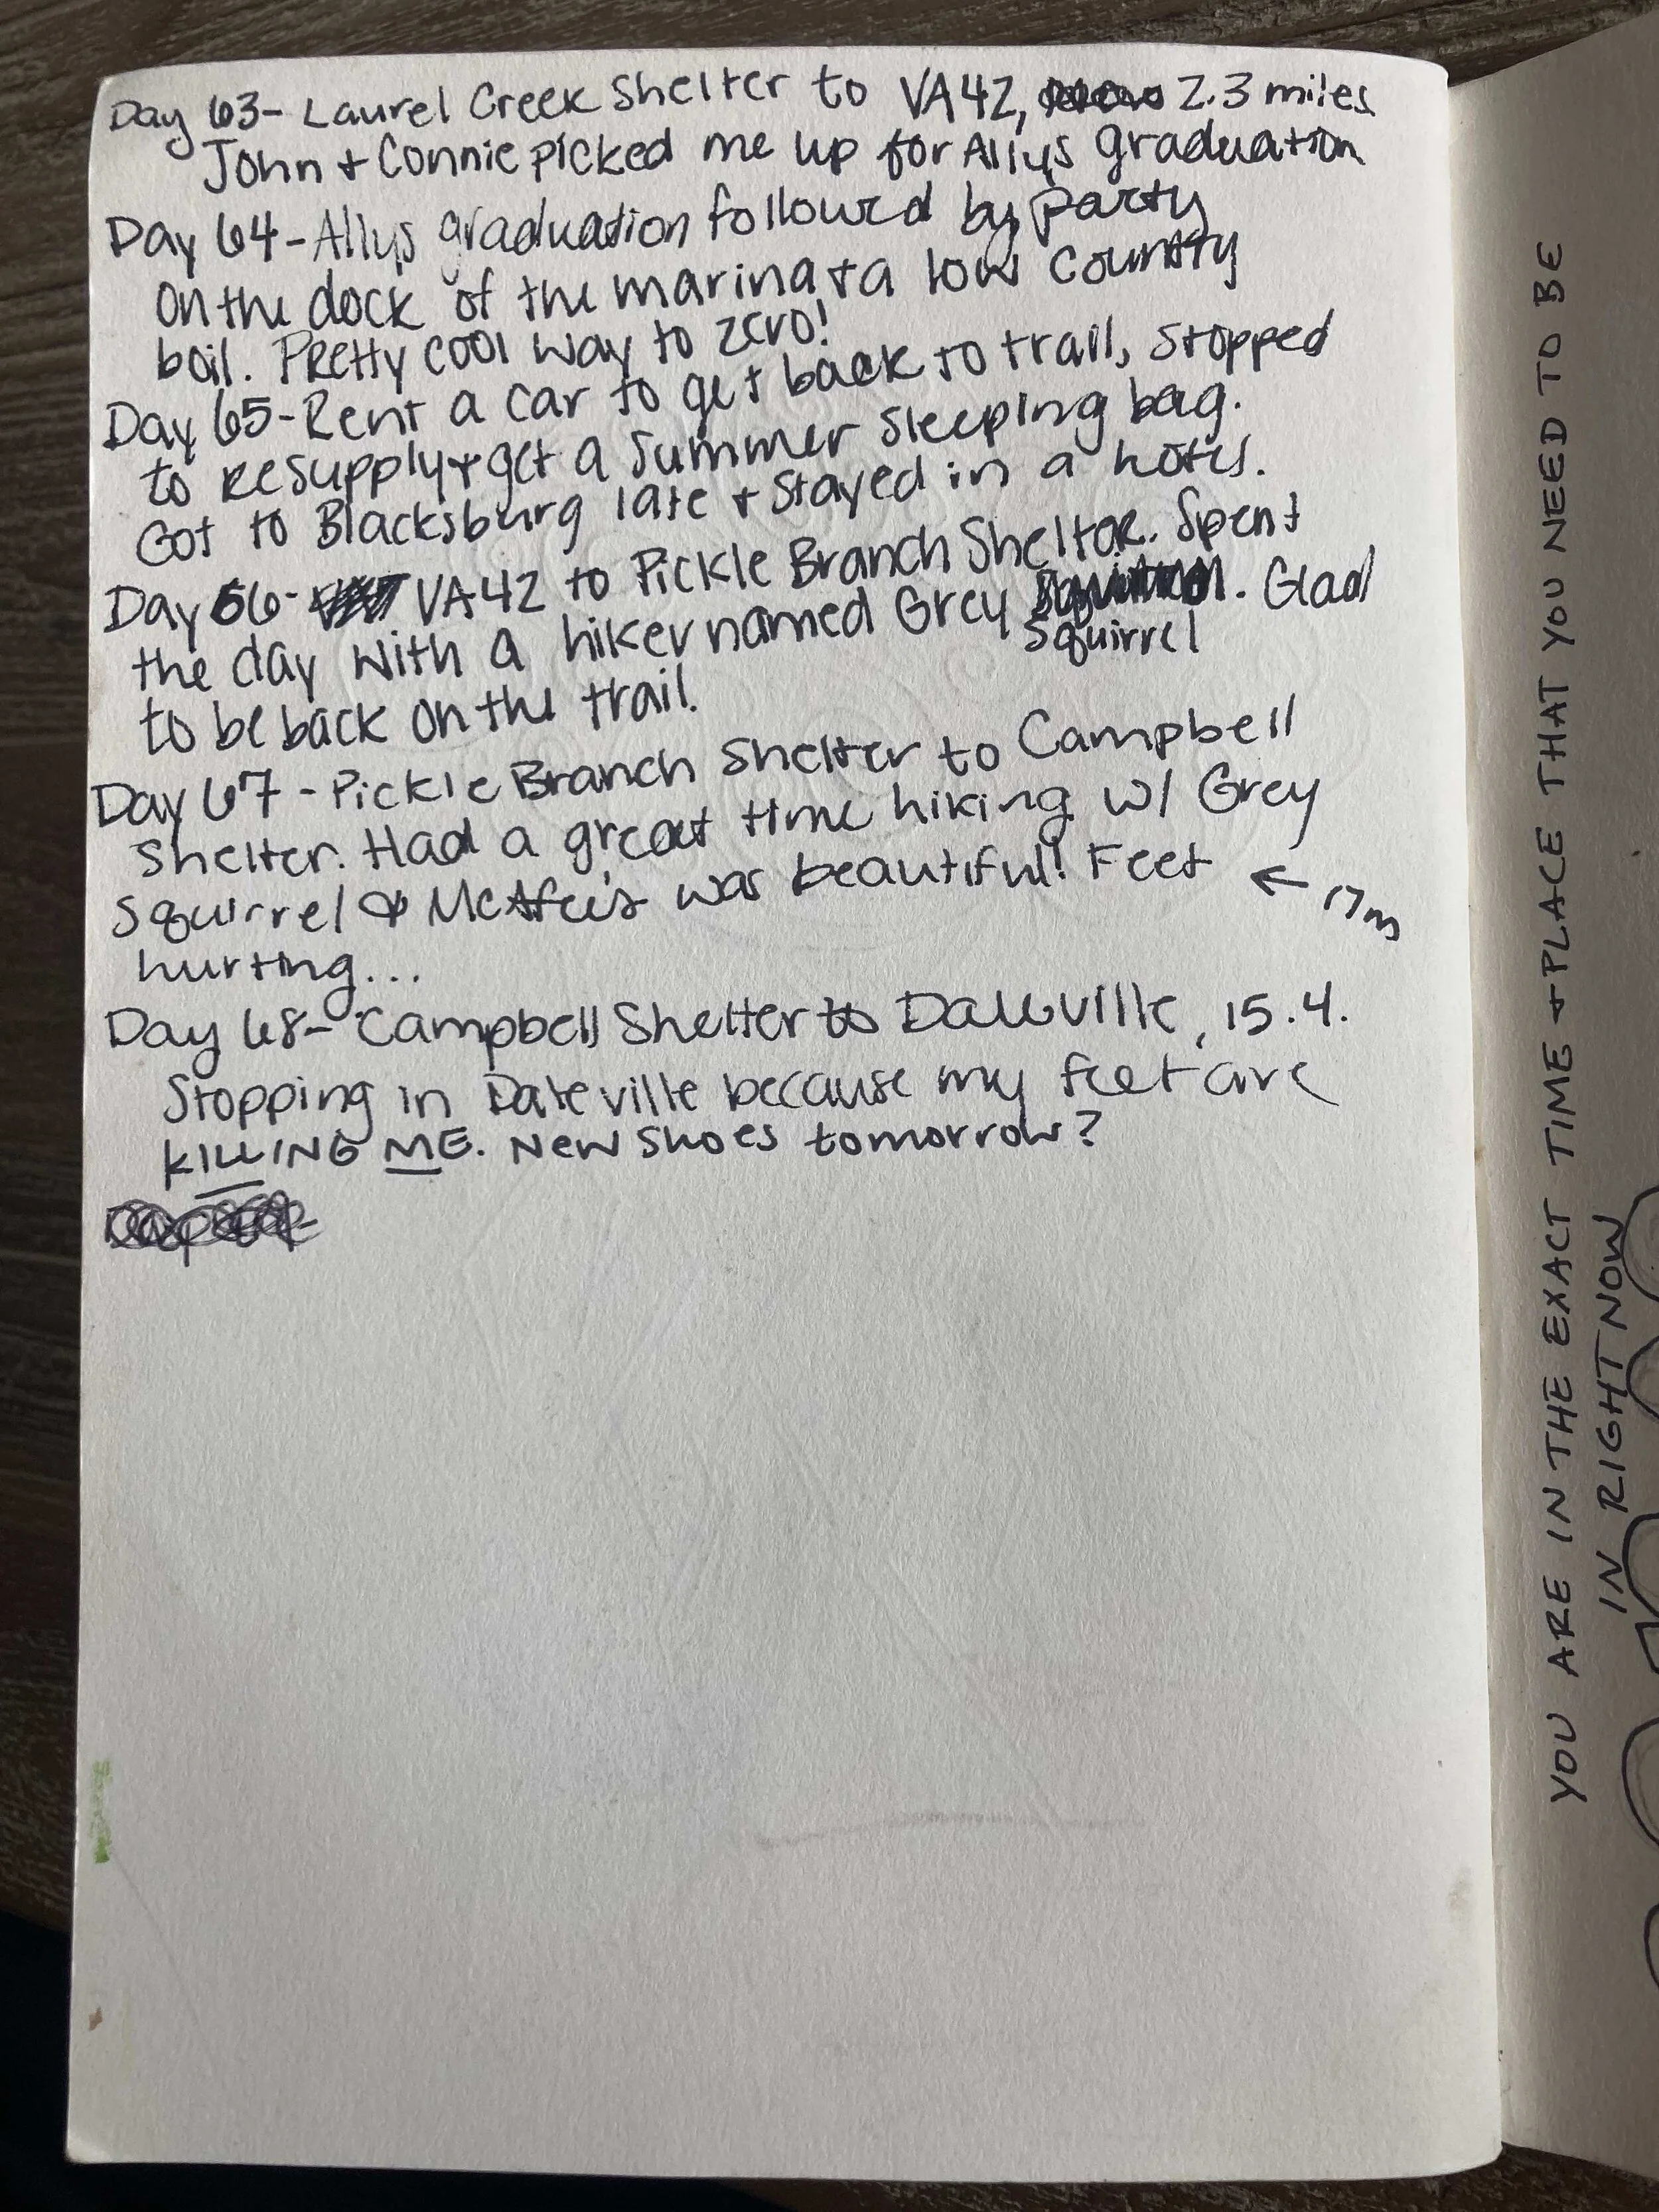 Day 63- Laurel Creek Shelter to VA42, 2.3 miles
John + Connie picked me up for Allys graduation
Day 64- Allys graduation followed by party
on the dock of the marina + a low country
boil. Pretty cool way to zero!
Day 65- Rent a car to get back to trail, stopped
to resupply + get a summer sleeping bag.
Got to Blacksburg late + stayed in a hotel.
Day 66- VA42 to Pickle Branch Shelter. Spent
the day with a hiker named Grey Squirrel. Glad
to be back on the trail.
Day 67- Pickle Branch Shelter to Campbell
Shelter. Had a great time hiking w/ Grey
Squirrel & McAfee's was beautiful! Feet ← 17m
hurting...
Day 68- Campbell Shelter to Daleville, 15.4.
Stopping in Daleville because my feet are
KILLING ME. New shoes tomorrow?
YOU ARE IN THE EXACT TIME + PLACE THAT YOU NEED TO BE
IN RIGHT NOW